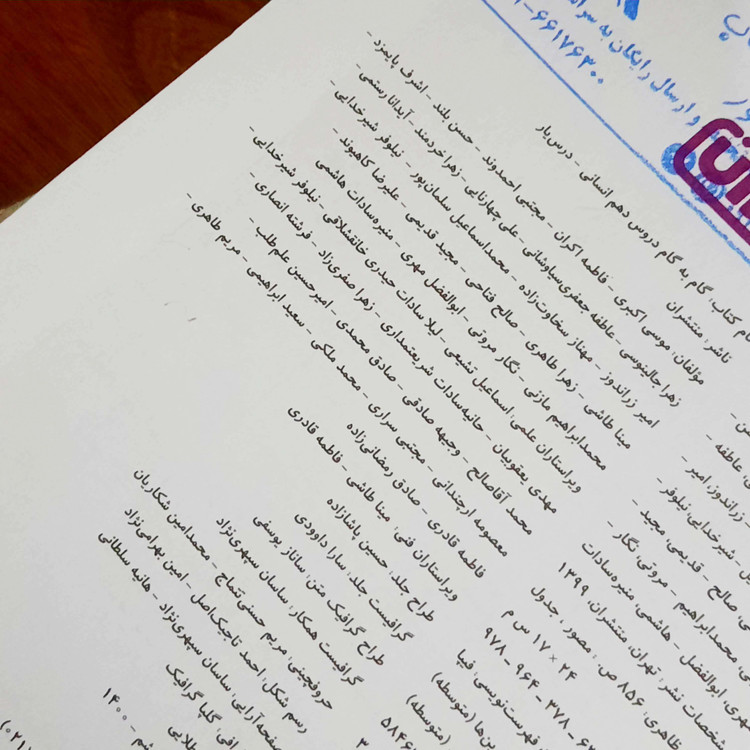 و ارسال رایگان به سرا
۶۶۱۷۶۳۰۰
نام کتاب: گام به گام دروس دهم انسانی - درس‌یار
ناشر: منتشران
مؤلفان: موسی اکبری - فاطمه اکران - مجتبی احمدوند - حسن بلند - اشرف پایمزد -
زهرا جالینوسی - عاطفه جعفری‌سیاوشانی - علی چهارتایی - زهرا خردمند - آیدانا رستمی -
امیر زراندوز - مهناز سخاوت‌زاده - محمداسماعیل سلمان‌پور - نیلوفر شیرخدایی -
مینا طاشی - زهرا طاهری - صالح فتاحی - مجید قدیمی - علیرضا کاهیوند -
محمدابراهیم مازنی - نگار مروتی - ابوالفضل مهری - منیره‌سادات هاشمی
ویراستاران علمی: اسماعیل تشیعی - لیلا سادات حیدری خانقشلاقی - نیلوفر شیرخدایی -
مهدی یعقوبیان - حانیه‌سادات شریعتمداری - زهرا صفری‌زاد - فرشته انصاری -
محمد آقاصالح - وجیهه صادقی - صادق محمدی - امیرحسین علم‌طلب -
معصومه ارجندانی - مجتبی سراری - محمد ملکی - سعید ابراهیمی - مریم طاهری -
فاطمه قادری - صادق رمضانی‌زاده
ویراستاران فنی: مینا طاشی - فاطمه قادری
طراح جلد: حسین پاشازاده
گرافیست جلد: سارا داوودی
طراح گرافیک متن: ساناز یوسفی
گرافیست همکار: ساسان سپهری‌نژاد
حروفچینی: مریم حسنی‌تتماج - محمدامین شکاریان
رسم شکل: احمد تاجیک‌اصل - امین بهرامی‌نژاد
صفحه‌آرایی: ساسان سپهری‌نژاد - هانیه سلطانی
گلپا گرافیک
طلایی
۱۴۰۰
(۰۲۱)
عاطفه -
زراندوز، امیر -
شیرخدایی، نیلوفر -
صالح - قدیمی، مجید -
محمدابراهیم - مروتی، نگار -
مهری، ابوالفضل - هاشمی، منیره‌سادات
مشخصات نشر: تهران: منتشران، ۱۳۹۹
ظاهری: ۸۵۶ ص: مصور، جدول
۲۴ × ۱۷ س م
۹۷۸ - ۹۶۴ - ۳۷۸ - ۶
فهرست‌نویسی: فیپا
(متوسطه)
(متوسطه)
۵۸۴۶
۳